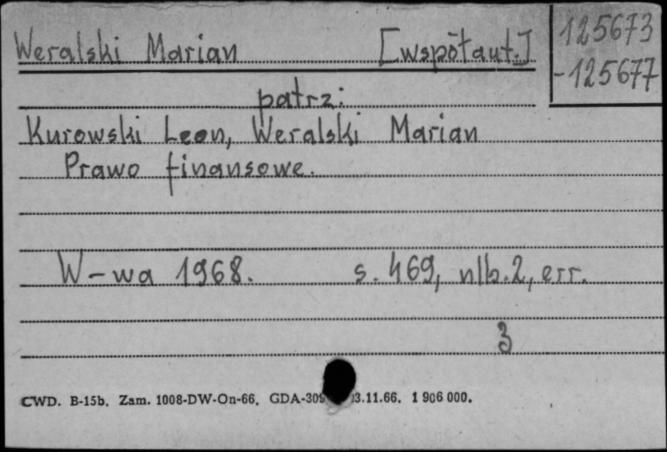 Weralski Marian [współaut.] 125673
-125677
patrz:
Kurowski Leon, Weralski Marian
Prawo finansowe.
W-wa 1968. s. 469, nlb. 2, err.
3
CWD. B-15b. Zam. 1008-DW-On-66. GDA-309 3.11.66. 1 906 000.